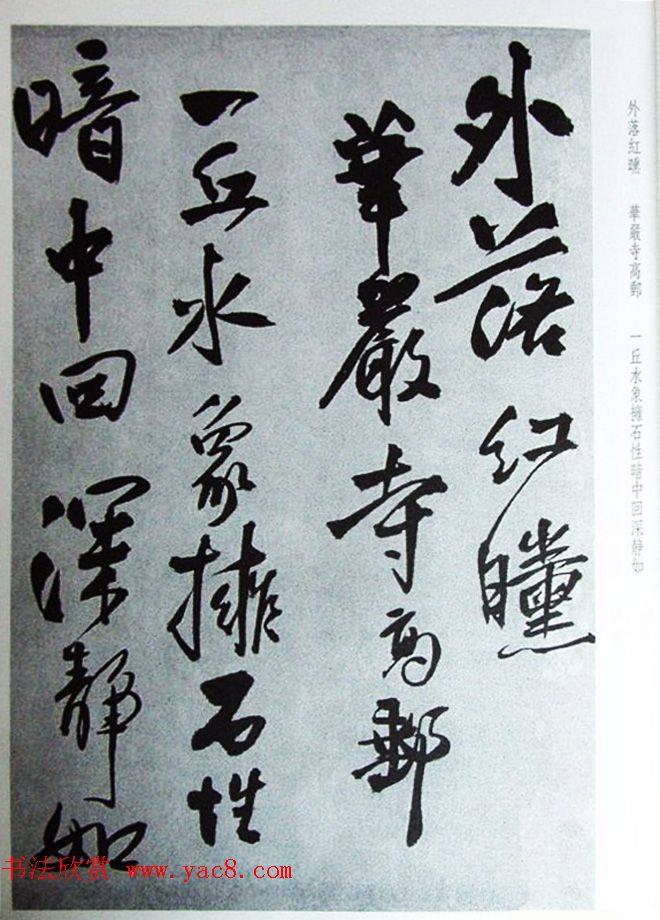 外落紅曛
華嚴寺高郵
一丘水象擁石性
暗中回深靜如
外落紅曛　華嚴寺高郵　一丘水象擁石性暗中回深靜如
书法欣赏 www.yac8.com